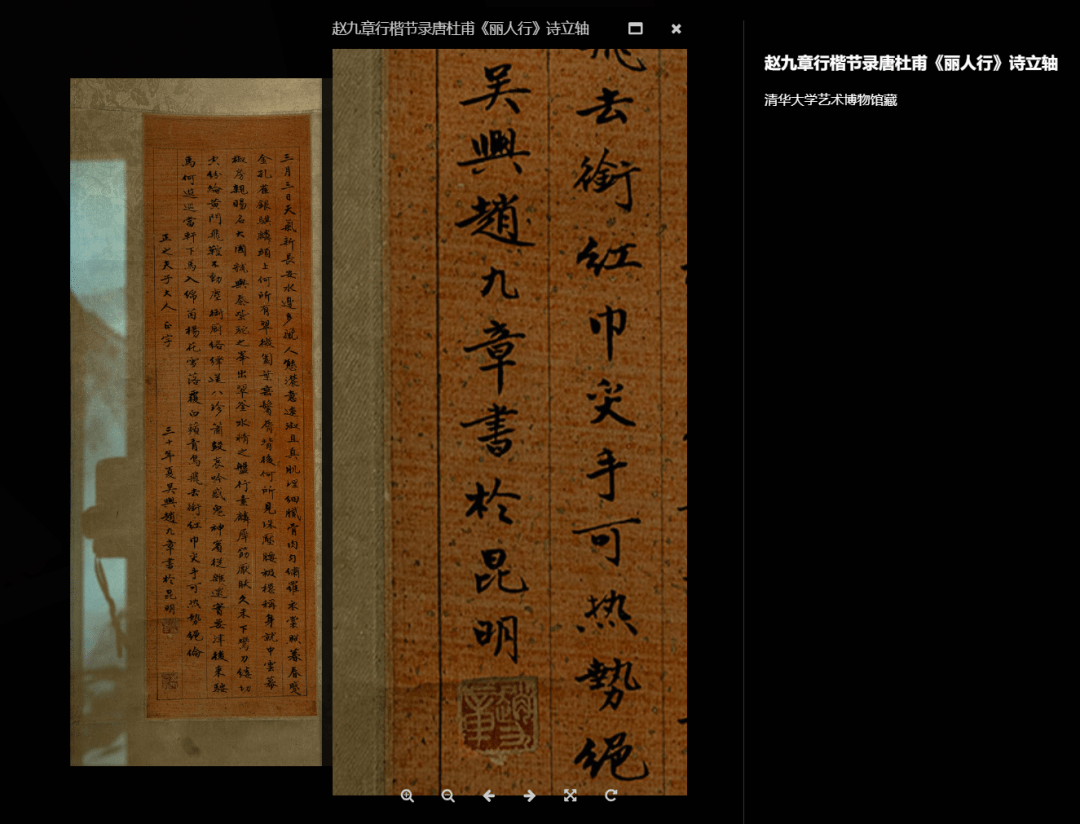 赵九章行楷节录唐杜甫《丽人行》诗立轴
三月三日天氣新長安水邊多麗人態濃意遠淑且真肌理細膩骨肉勻繡羅衣裳照暮春蹙
金孔雀銀麒麟頭上何所有翠微㔩葉垂鬢唇背後何所見珠壓腰衱穩稱身就中雲幕
椒房親賜名大國虢與秦紫駝之峯出翠釜水精之盤行素鱗犀筯厭飫久未下鸞刀縷切
空紛綸黃門飛鞚不動塵御廚絡繹送八珍簫鼓哀吟感鬼神賓從雜遝實要津後來鞍
馬何逡巡當軒下馬入錦茵楊花雪落覆白蘋青鳥飛去銜紅巾炙手可热勢絕倫
正之夫子大人 正字
三十年夏吳興趙九章書於昆明
飛去銜紅巾炙手可热勢絕
吳興趙九章書於昆明
赵九章行楷节录唐杜甫《丽人行》诗立轴
清华大学艺术博物馆藏